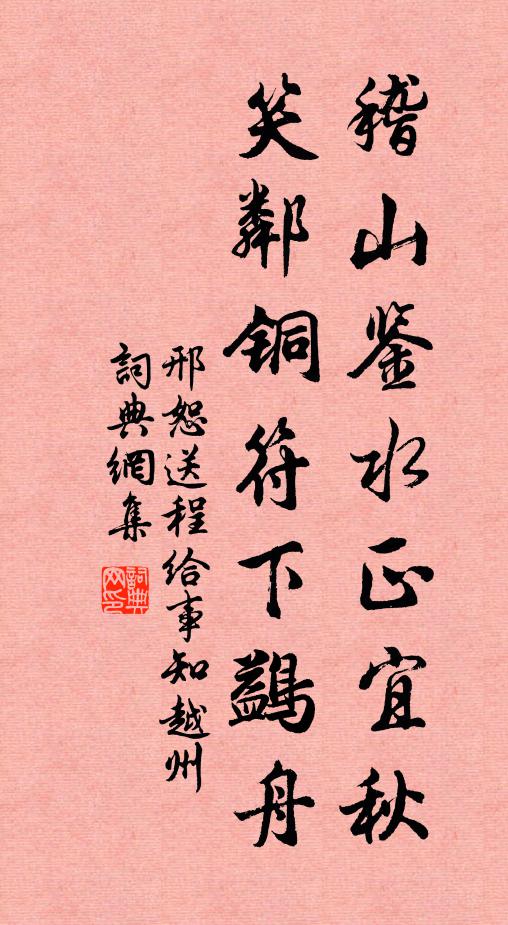 稽山鉴水正宜秋
笑鄰铜符下鷁舟
邢恕送程给事知越州
詞典網集
詞典网印